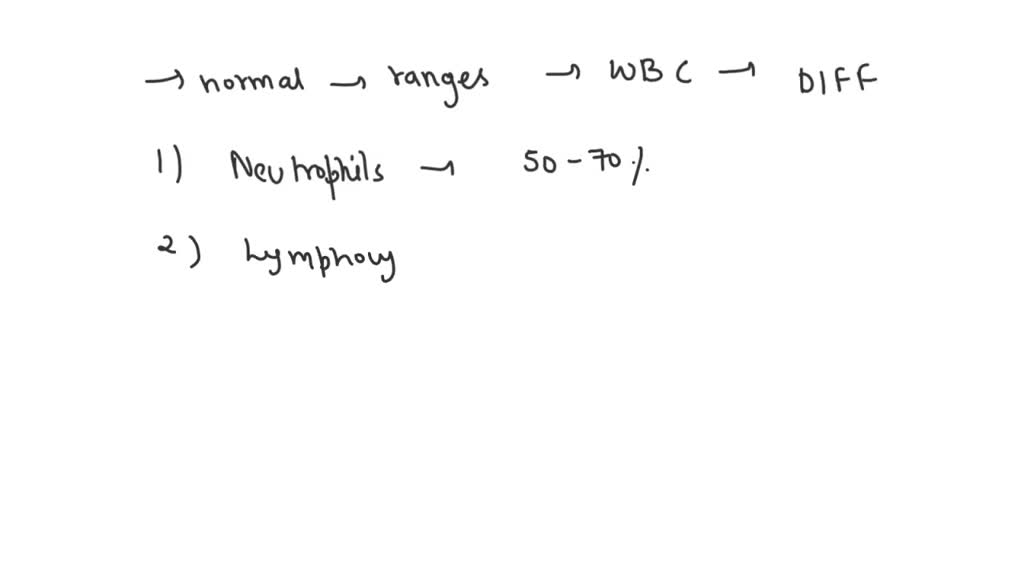 → normal → ranges → WBC → DIFF
1) Neutrophils → 50-70%.
2) Lymphocy